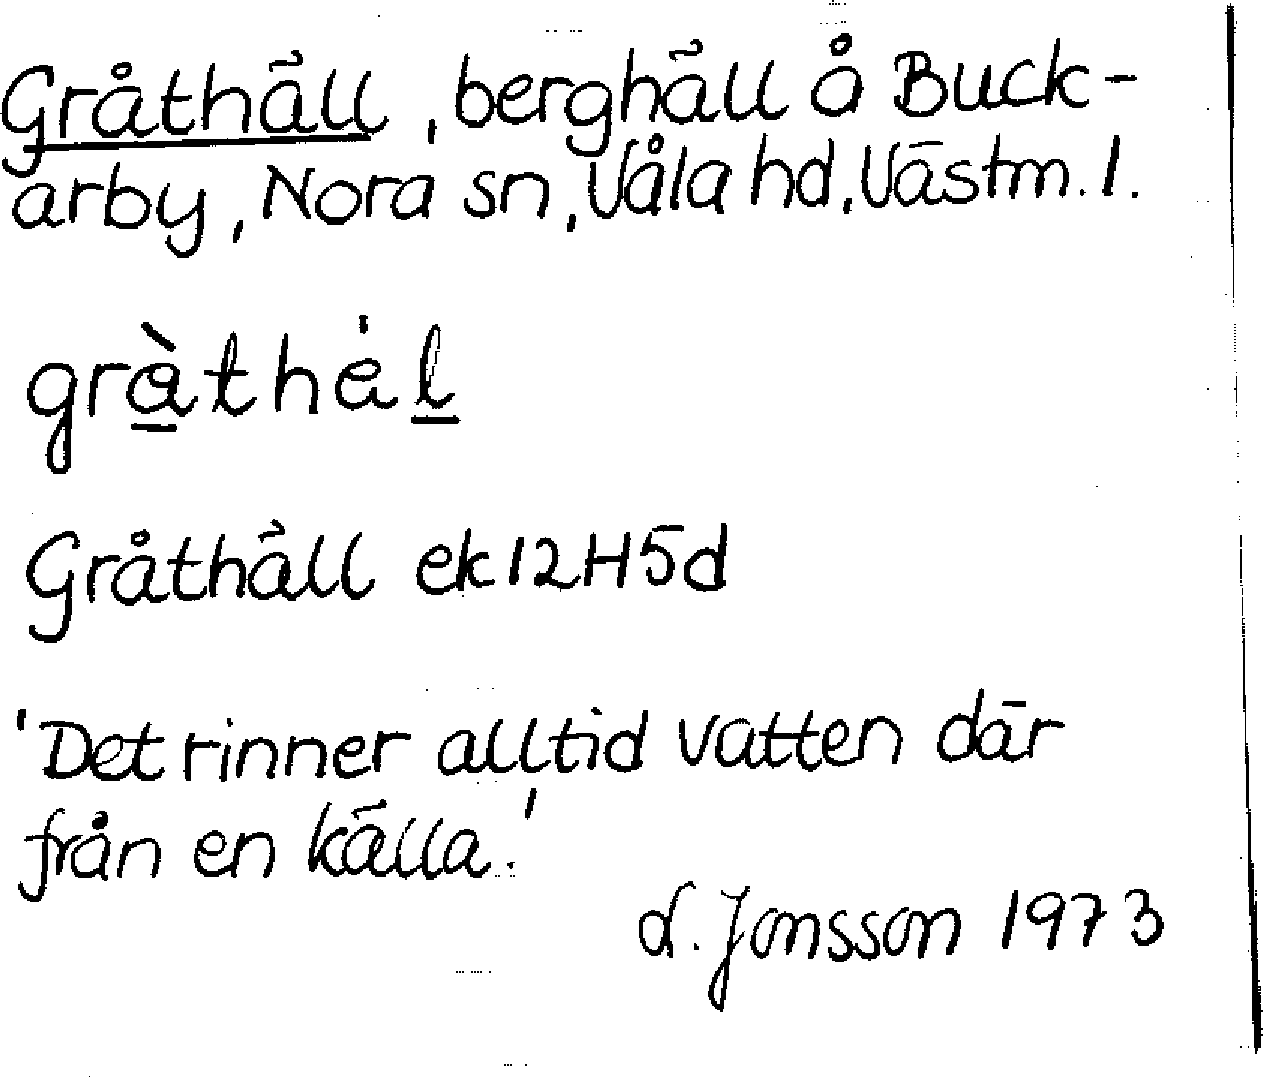 Gråthäll, berghäll å Buck-
arby, Nora sn, Våla hd, Västm. l.
gràthàl
Gråthäll ek 12H5d
'Det rinner alltid vatten där
från en källa.'
L. Jonsson 1973